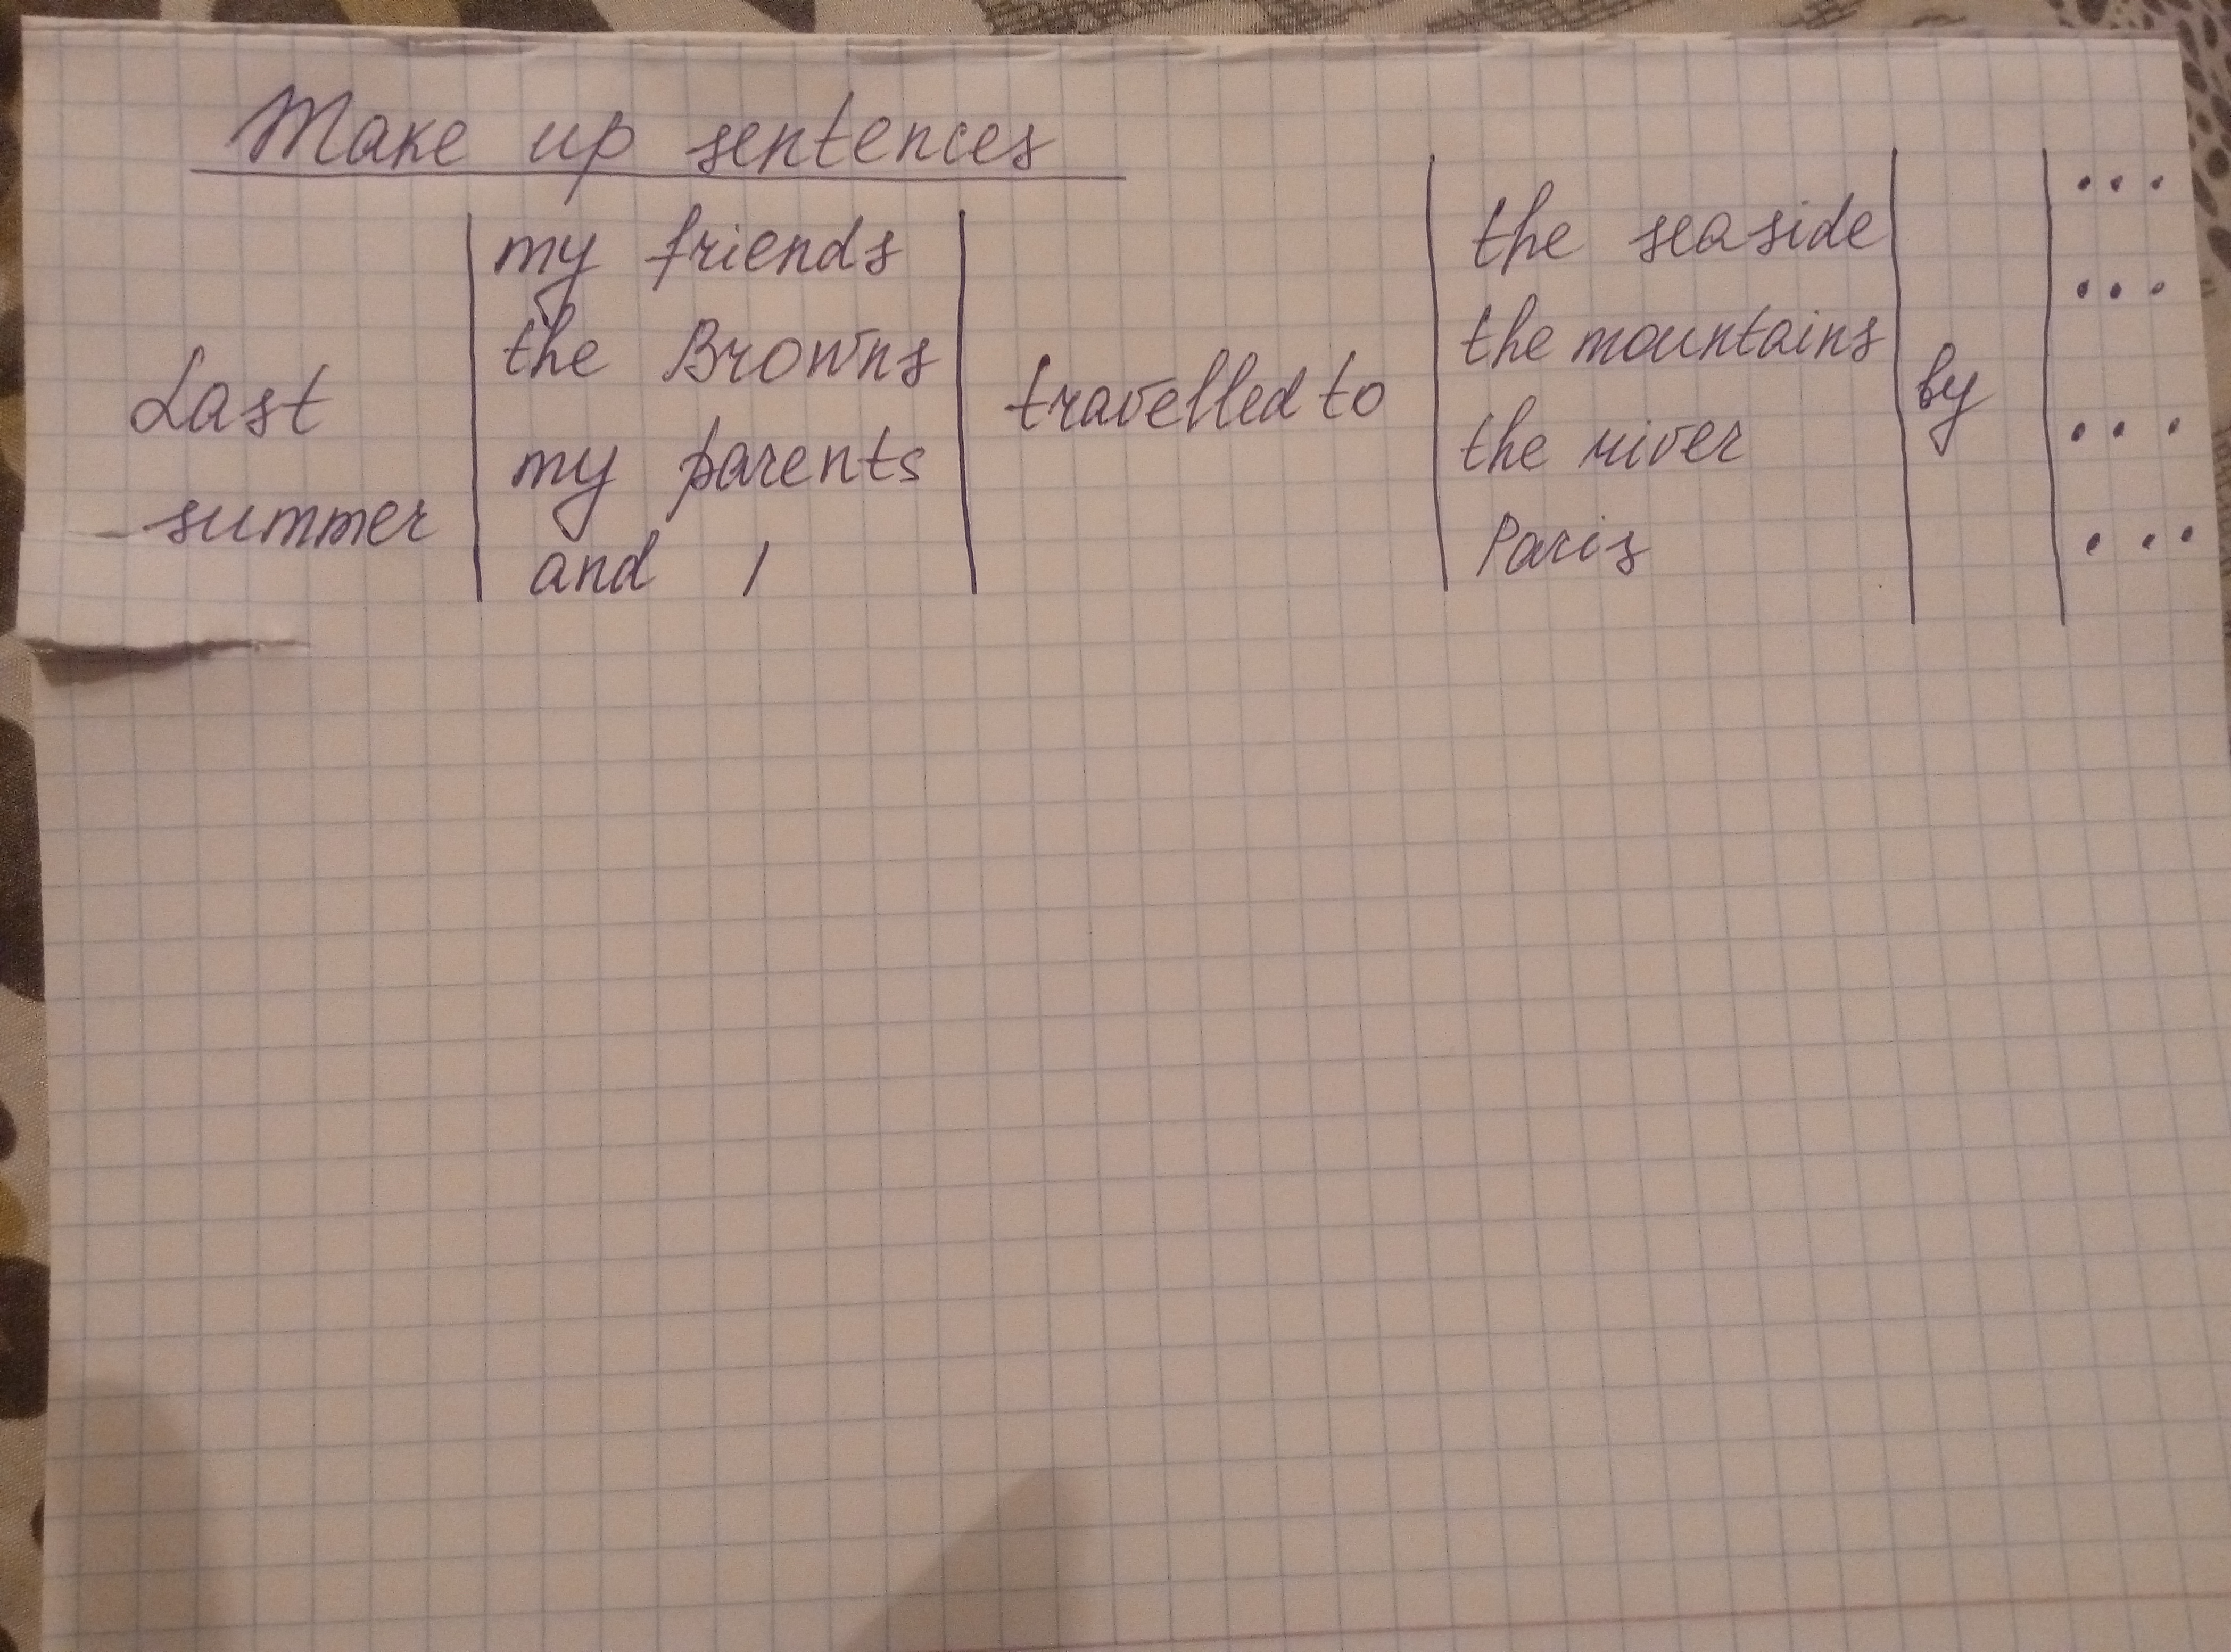 Make up sentences
Last
summer
my friends
the Browns
my parents
and I
travelled to
the seaside
the mountains
the river
Paris
by
...
...
...
...